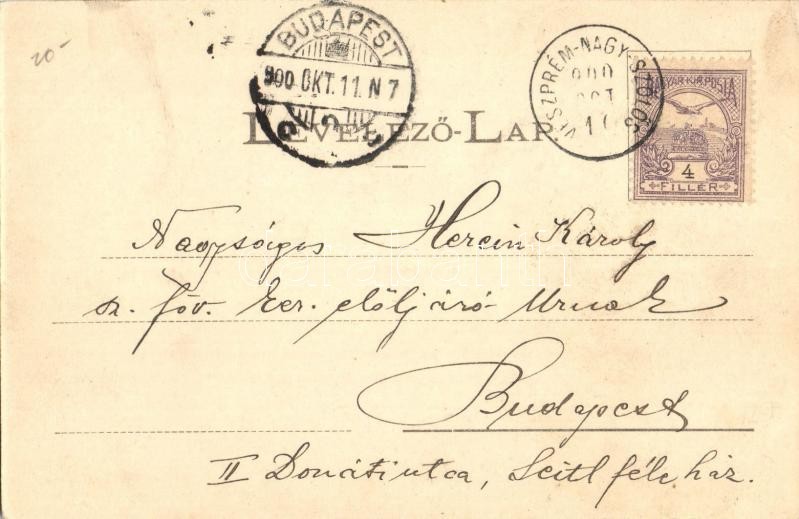 20-
BUDAPEST
900 OKT. 11. N 7
VESZPRÉM-NAGY-SZŐLŐS
900
OKT
MAGYAR KIR. POSTA
4
FILLÉR
LEVELEZŐ-LAP
Nagyságos Herein Károly
sz. föv. ker. előljáró Urnak
Budapest
II Donáti utca, Seitl féle ház.